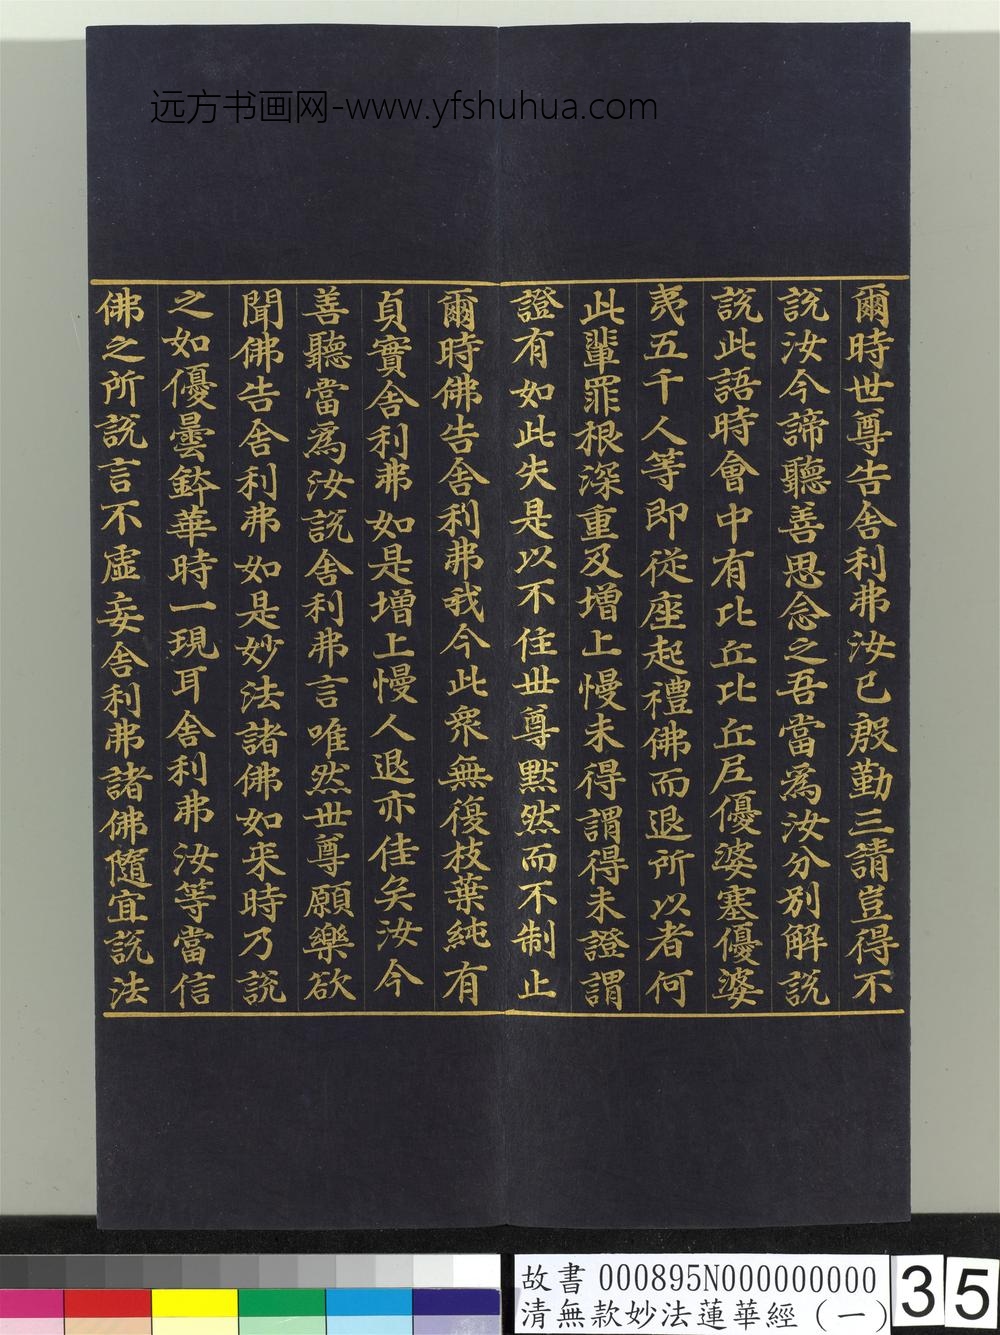 远方书画网-www.yfshuhua.com
爾時世尊告舍利弗汝已殷勤三請豈得不
說汝今諦聽善思念之吾當為汝分別解說
說此語時會中有比丘比丘尼優婆塞優婆
夷五千人等即從座起禮佛而退所以者何
此輩罪根深重及增上慢未得謂得未證謂
證有如此失是以不住世尊默然而不制止
爾時佛告舍利弗我今此眾無復枝葉純有
貞實舍利弗如是增上慢人退亦佳矣汝今
善聽當為汝說舍利弗言唯然世尊願樂欲
聞佛告舍利弗如是妙法諸佛如來時乃說
之如優曇鉢華時一現耳舍利弗汝等當信
佛之所說言不虛妄舍利弗諸佛隨宜說法
故書 000895N000000000
清無款妙法蓮華經（一）
35